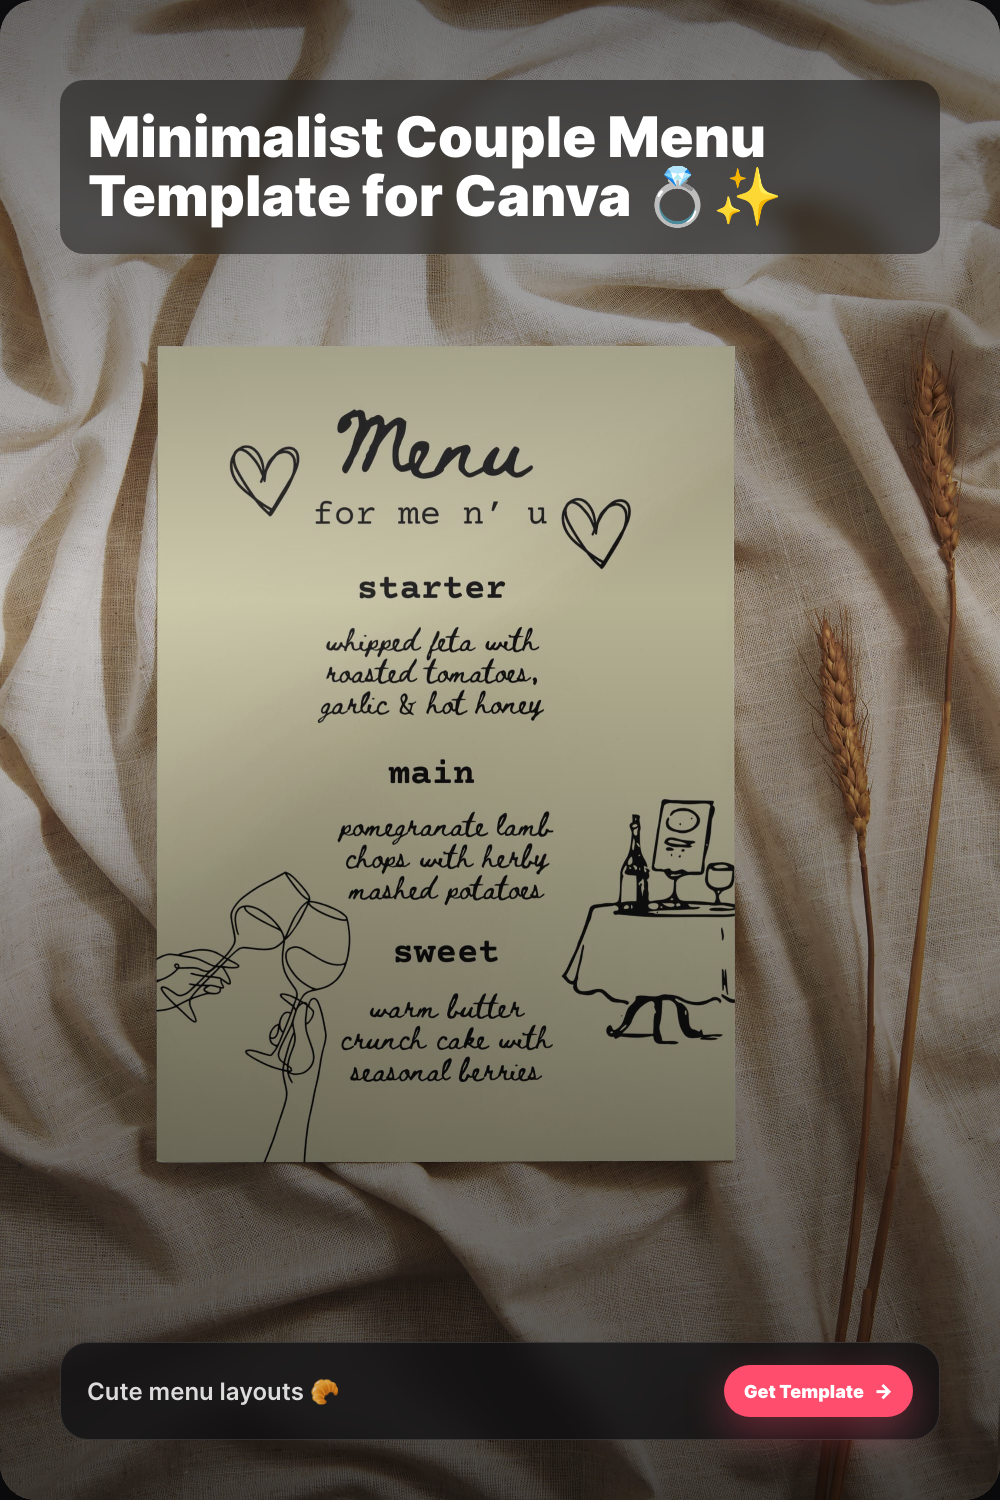 Minimalist Couple Menu
Template for Canva 💍✨
Menu
for me n’ u
starter
whipped feta with
roasted tomatoes,
garlic & hot honey
main
pomegranate lamb
chops with herby
mashed potatoes
sweet
warm butter
crunch cake with
seasonal berries
Cute menu layouts 🥐
Get Template →